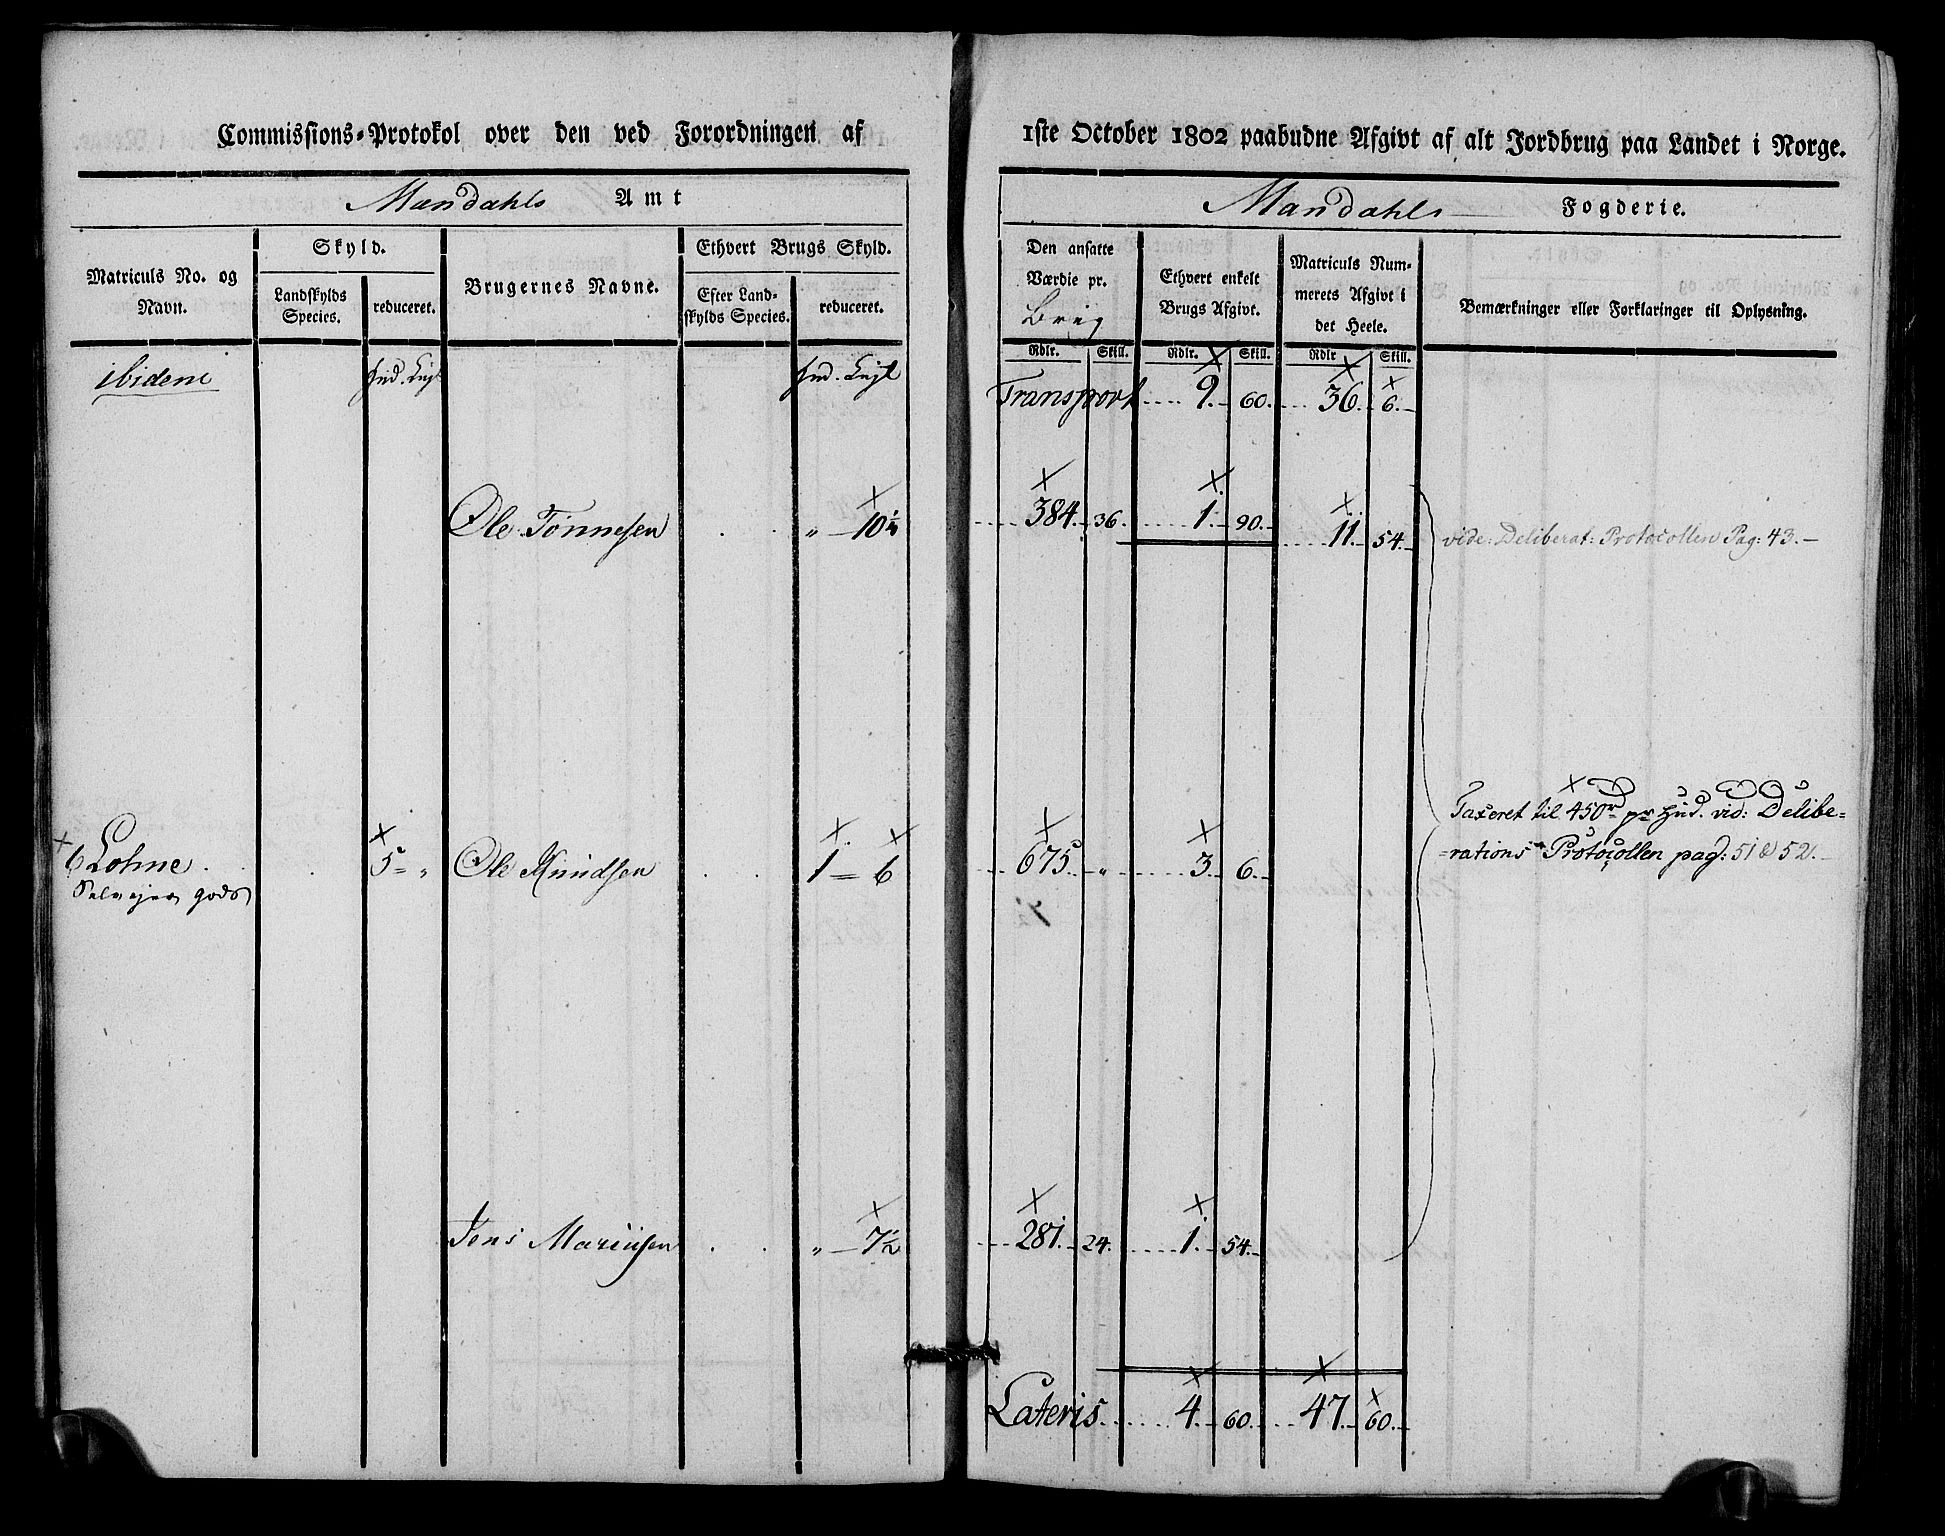 Commissions-Protokol over den ved Forordningen af
Mandahls Amt
Matriculs No. og Navn.
Skyld.
Landskylds Species.
reduceret.
Brugernes Navne.
Ethvert Brugs Skyld.
Efter Landskylds Species.
reduceret.
ibidem
Hud. Engl
Hud. Engl
Ole Tønnesen . . „ – 10 1/4
6 Lohne . . . 5 = „ Ole Knudsen . . 1 – 6
Selvejer gods
Jens Mariusen . . „ – 7 1/2
1ste October 1802 paabudne Afgivt af alt Jordbrug paa Landet i Norge.
Mandahls Fogderie.
Den ansatte
Værdie pr.
Brug
Rdlr. Skill.
Ethvert enkelt
Brugs Afgivt.
Rdlr. Skill.
Matriculs Num-
merets Afgivt i
det Heele.
Rdlr Skill.
Bemærkninger eller Forklaringer til Oplysning.
Transport 9. 60. 36. 6.
384. 36. 1. 90. 11. 54. vide: Deliberat: Protocollen Pag: 43.
Taxeret til 450 rd pr Hud. vid: Delibe=
=rations Protocollen pag: 51 & 52.
675 „ 3. 6.
7 1/2
281. 24. 1. 54.
Lateris 4. 60. 47. 60.